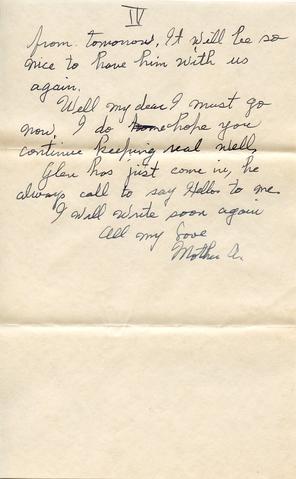 IV
from tomorrow. It will be so
nice to have him with us
again.
Well my dear I must go
now. I do hope you
continue keeping real well,
Glen has just come in, he
always call to say Hello to me.
I will write soon again
All my Love
Mother A.